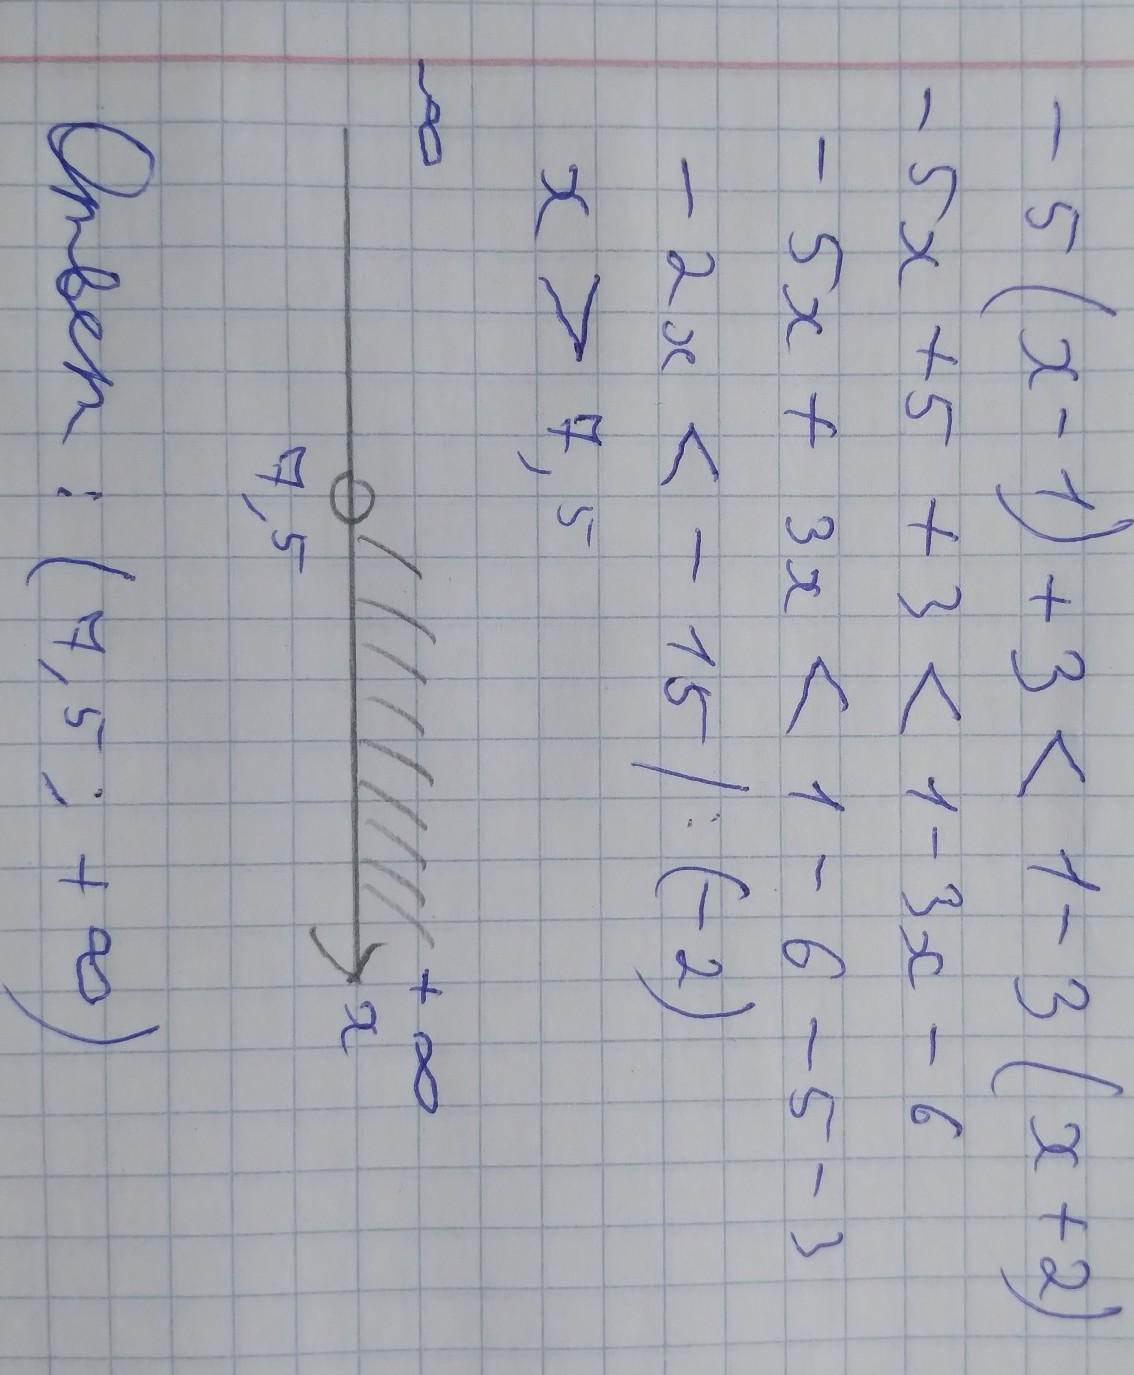 - 5(x-1)+3<1-3(x+2)
- 5x+5+3<1-3x-6
- 5x+3x<1-6-5-3
- 2x<-15/:(-2)
x>7,5
-∞ +∞
7,5 x
Ответ: (7,5; +∞)